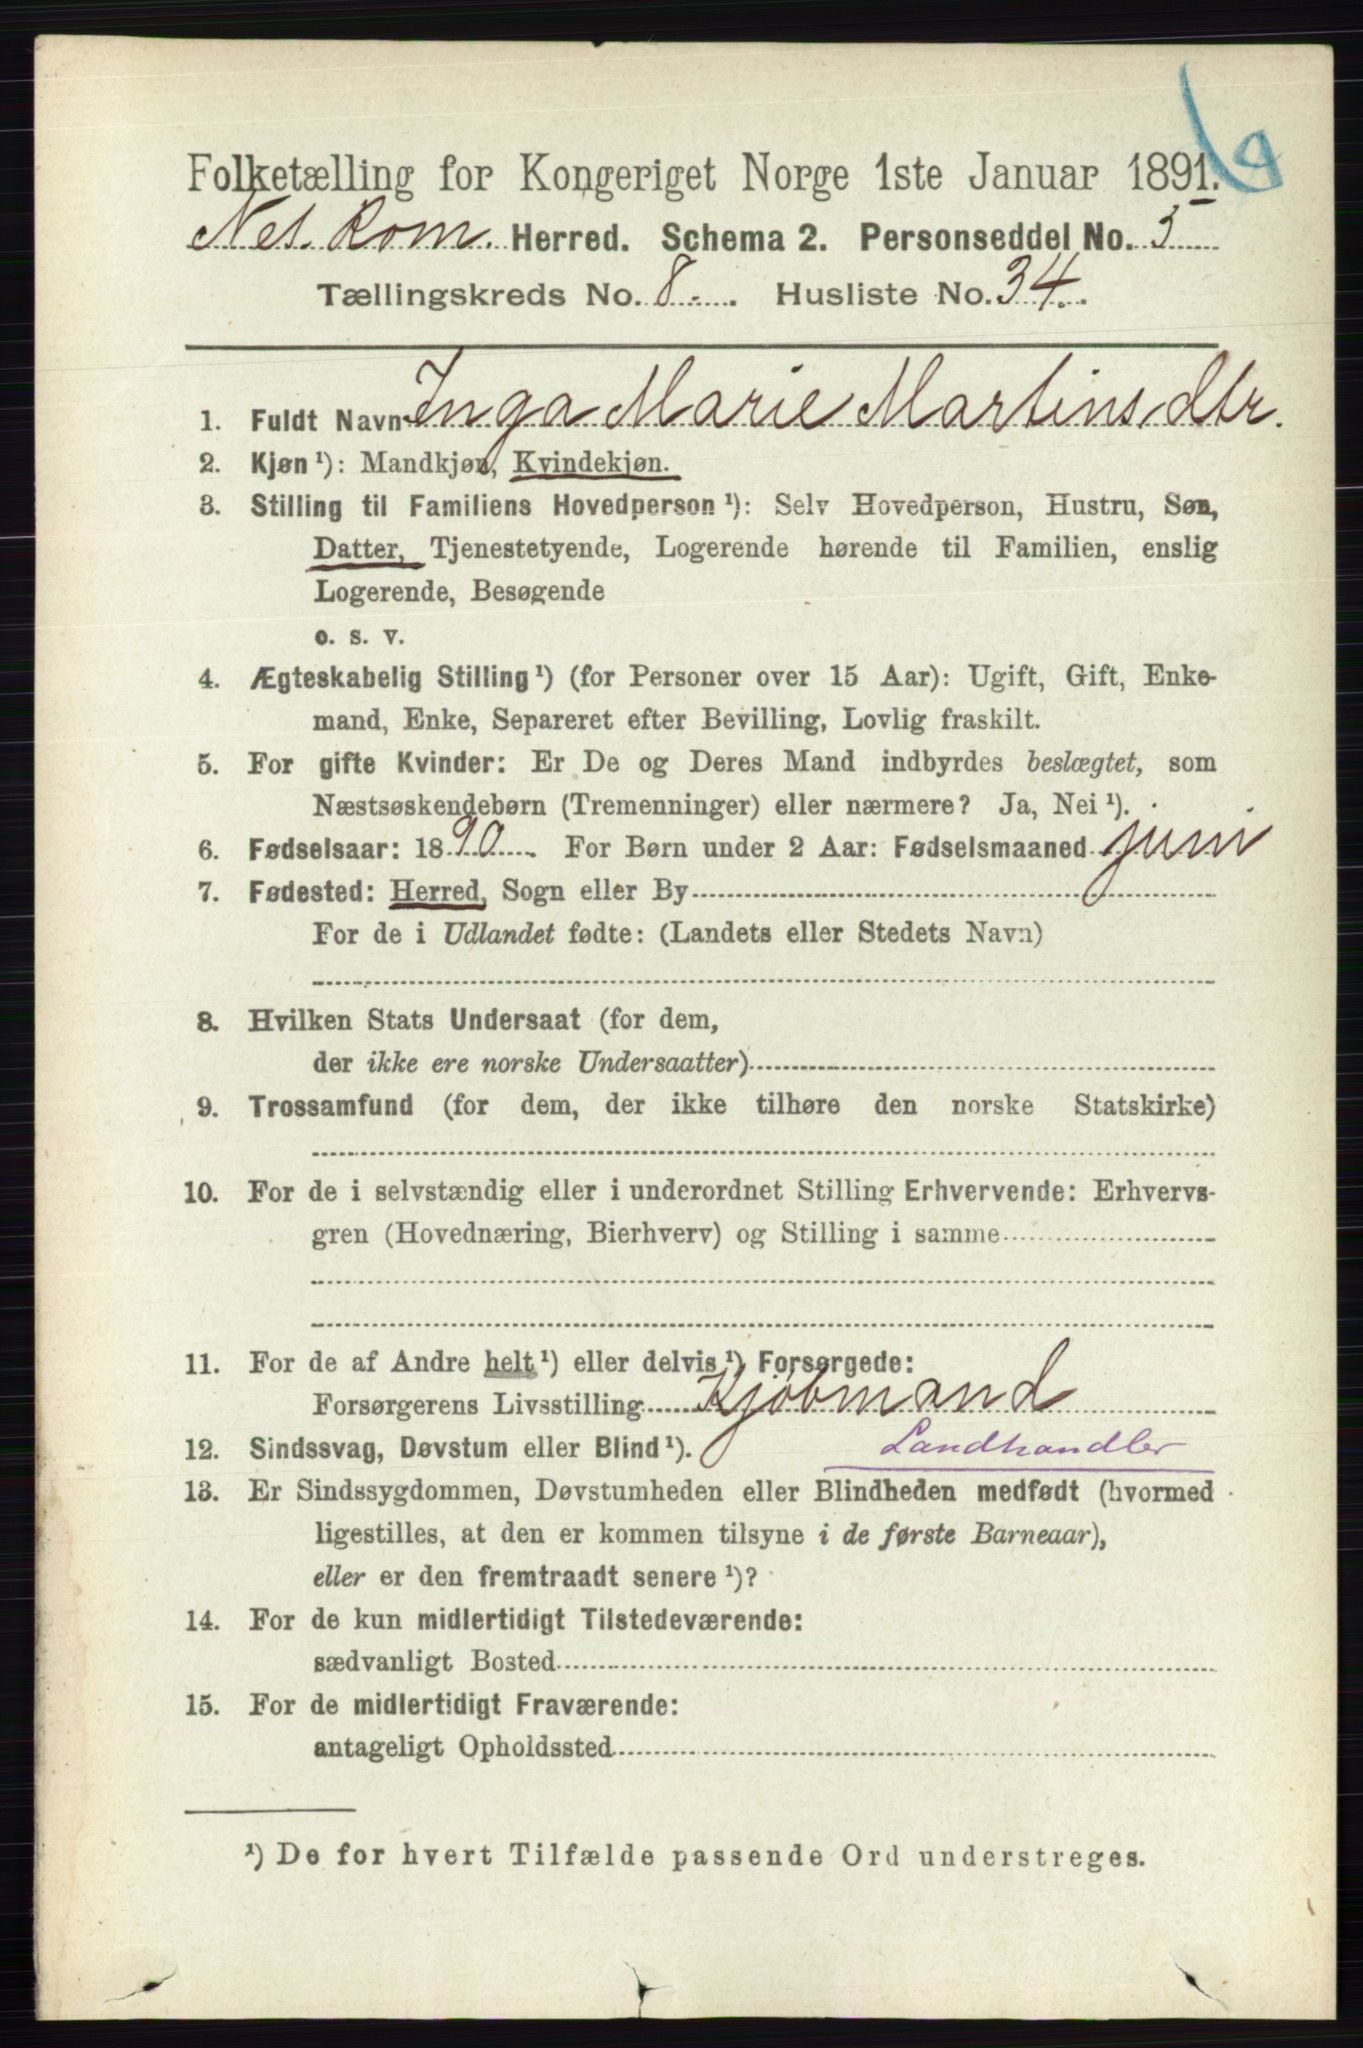 Folketælling for Kongeriget Norge 1ste Januar 1891.
Nes. Rom. Herred. Schema 2. Personseddel No. 5
Tællingskreds No. 8. Husliste No. 34.
1. Fuldt Navn Inga Marie Martinsdtr.
2. Kjøn ¹): Mandkjøn, Kvindekjøn.
3. Stilling til Familiens Hovedperson ¹): Selv Hovedperson, Hustru, Søn,
Datter, Tjenestetyende, Logerende hørende til Familien, enslig
Logerende, Besøgende
o. s. v.
4. Ægteskabelig Stilling ¹) (for Personer over 15 Aar): Ugift, Gift, Enke-
mand, Enke, Separeret efter Bevilling, Lovlig fraskilt.
5. For gifte Kvinder: Er De og Deres Mand indbyrdes beslægtet, som
Næstsøskendebørn (Tremenninger) eller nærmere? Ja, Nei ¹).
6. Fødselsaar: 1890. For Børn under 2 Aar: Fødselsmaaned juni
7. Fødested: Herred, Sogn eller By
For de i Udlandet fødte: (Landets eller Stedets Navn)
8. Hvilken Stats Undersaat (for dem,
der ikke ere norske Undersaatter)
9. Trossamfund (for dem, der ikke tilhøre den norske Statskirke)
10. For de i selvstændig eller i underordnet Stilling Erhvervende: Erhvervs-
gren (Hovednæring, Bierhverv) og Stilling i samme
11. For de af Andre helt ¹) eller delvis ¹) Forsørgede:
Forsørgerens Livsstilling Kjöbmand
12. Sindssvag, Døvstum eller Blind ¹). Landhandler
13. Er Sindssygdommen, Døvstumheden eller Blindheden medfødt (hvormed
ligestilles, at den er kommen tilsyne i de første Barneaar),
eller er den fremtraadt senere ¹)?
14. For de kun midlertidigt Tilstedeværende:
sædvanligt Bosted
15. For de midlertidigt Fraværende:
antageligt Opholdssted
¹) De for hvert Tilfælde passende Ord understreges.